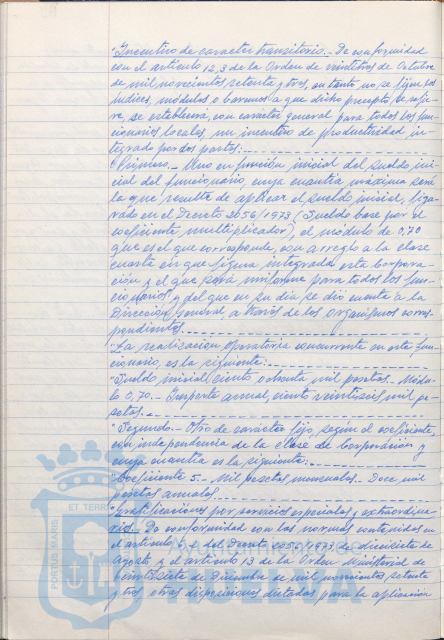 "Incentivo de caracter transitorio.- De conformidad
con el artículo 12,3 de la Orden de veintitres de Octubre
de mil novecientos setenta y tres, en tanto no se fijen los
índices, módulos o baremos a que dicho precepto se refie-
re, se establecerá, con carácter general para todos los fun-
cionarios locales, un incentivo de productividad in-
tegrado por dos partes:
"Primero.- Uno en función inicial del sueldo ini-
cial del funcionario, cuya cuantía máxima será
la que resulte de aplicar el sueldo inicial, figu-
rado en el Decreto 2056/1973 (Sueldo base por el
coeficiente multiplicador), el módulo de 0,70
que es el que corresponde, con arreglo a la clase
cuarta en que figura integrada esta Corpora-
ción y el que será uniforme para todos los fun-
cionarios" y del que en su día se dió cuenta a la
Dirección General a través de los Organismos corres-
pondientes.
"La realización operatoria concurrente en este fun-
cionario, es la siguiente:
"Sueldo inicial, ciento ochenta mil pesetas.- Módu-
lo 0,70.- Importe anual, ciento veintiseis mil pe-
setas.
"Segundo.- Otro de carácter fijo, según el coeficiente
con independencia de la clase de Corporación y
cuya cuantía es la siguiente:
"Coeficiente 5.- Mil pesetas mensuales.- Doce mil
pesetas anuales.
"Gratificaciones por servicios especiales y extraordina-
rios.- De conformidad con las normas contenidas en
el artículo del Decreto 2056/1973 de diecisiete de
Agosto y el artículo 13 de la Orden Ministerial de
veintisiete de Diciembre de mil novecientos setenta
y tres otras disposiciones dictadas para la aplicación
PORTUS MARIS ET TERRÆ
Ayuntamiento de
HUELVA